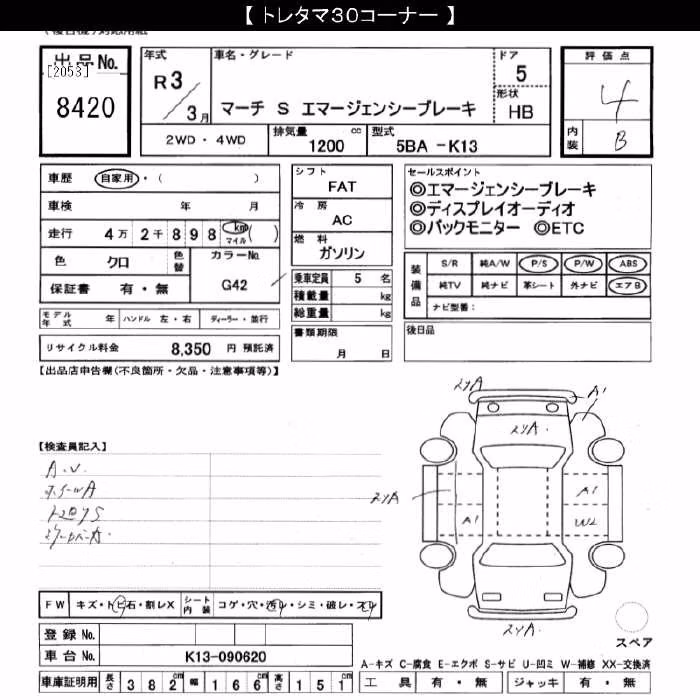 【 トレタマ30コーナー 】
出品No.
[2053]
8420
年式
R3
3月
車名・グレード
マーチ S エマージェンシーブレーキ
ドア
5
形状
HB
2WD・4WD
排気量
1200 cc
型式
5BA -K13
評価点
4
内装
B
車歴 自家用・( )
車検 年 月
走行 4万 2千 8 9 8 km マイル ( )
色 クロ
色替
カラーNo.
G42
保証書 有・無
モデル年式 年 ハンドル 左・右 ディーラー・並行
リサイクル料金 8,350 円 預託済
シフト
FAT
冷房
AC
燃料
ガソリン
乗車定員 5 名
積載量 kg
総重量 kg
書類期限
月 日
セールスポイント
◎エマージェンシーブレーキ
◎ディスプレイオーディオ
◎バックモニター ◎ETC
装備品
S/R 純A/W P/S P/W ABS
純TV 純ナビ 革シート 外ナビ エアB
ナビ型番:
後日品
【出品店申告欄(不良箇所・欠品・注意事項等)】
【検査員記入】
A.V.
ホイールA
A1
A1
A1
W2
FW キズ・トビ石・割レX
シート内装 コゲ・穴・汚レ・シミ・破レ・スレ
登録No.
車台No. K13-090620
車庫証明用 長さ 382cm 幅 166cm 高さ 151cm
スペア
A-キズ C-腐食 E-エクボ S-サビ U-凹ミ W-補修 XX-交換済
工具 有・無 ジャッキ 有・無